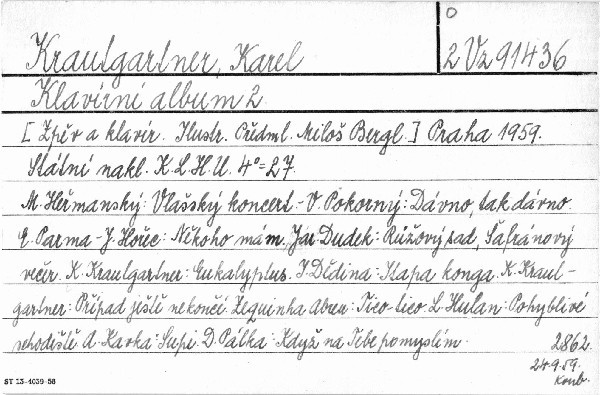 O
Krautgartner, Karel
2 Vz 91436
Klavírní album 2
[ Zpěv a klavír. Ilustr. Předml. Miloš Bergl. ] Praha 1959.
Státní nakl. K. L. H. U. 4° = 27.
M. Heřmanský: Vlašský koncert - V. Pokorný: Dávno, tak dávno.
E. Parma - J. Hořec: Někoho mám. Jar. Dudek: Růžový sad, Šafránový
večer. K. Krautgartner: Eukalyptus. J. Dědina: Kapa konga. K. Kraut-
gartner: Případ ještě nekončí. Zequinha Abreu: Tico-tico. L. Hulan: Pohyblivé
schodiště. A. Karka: Supi. D. Pálka: Když na Tebe pomyslím.
2862.
24.9.59.
Koub.
ST 13-4039-56